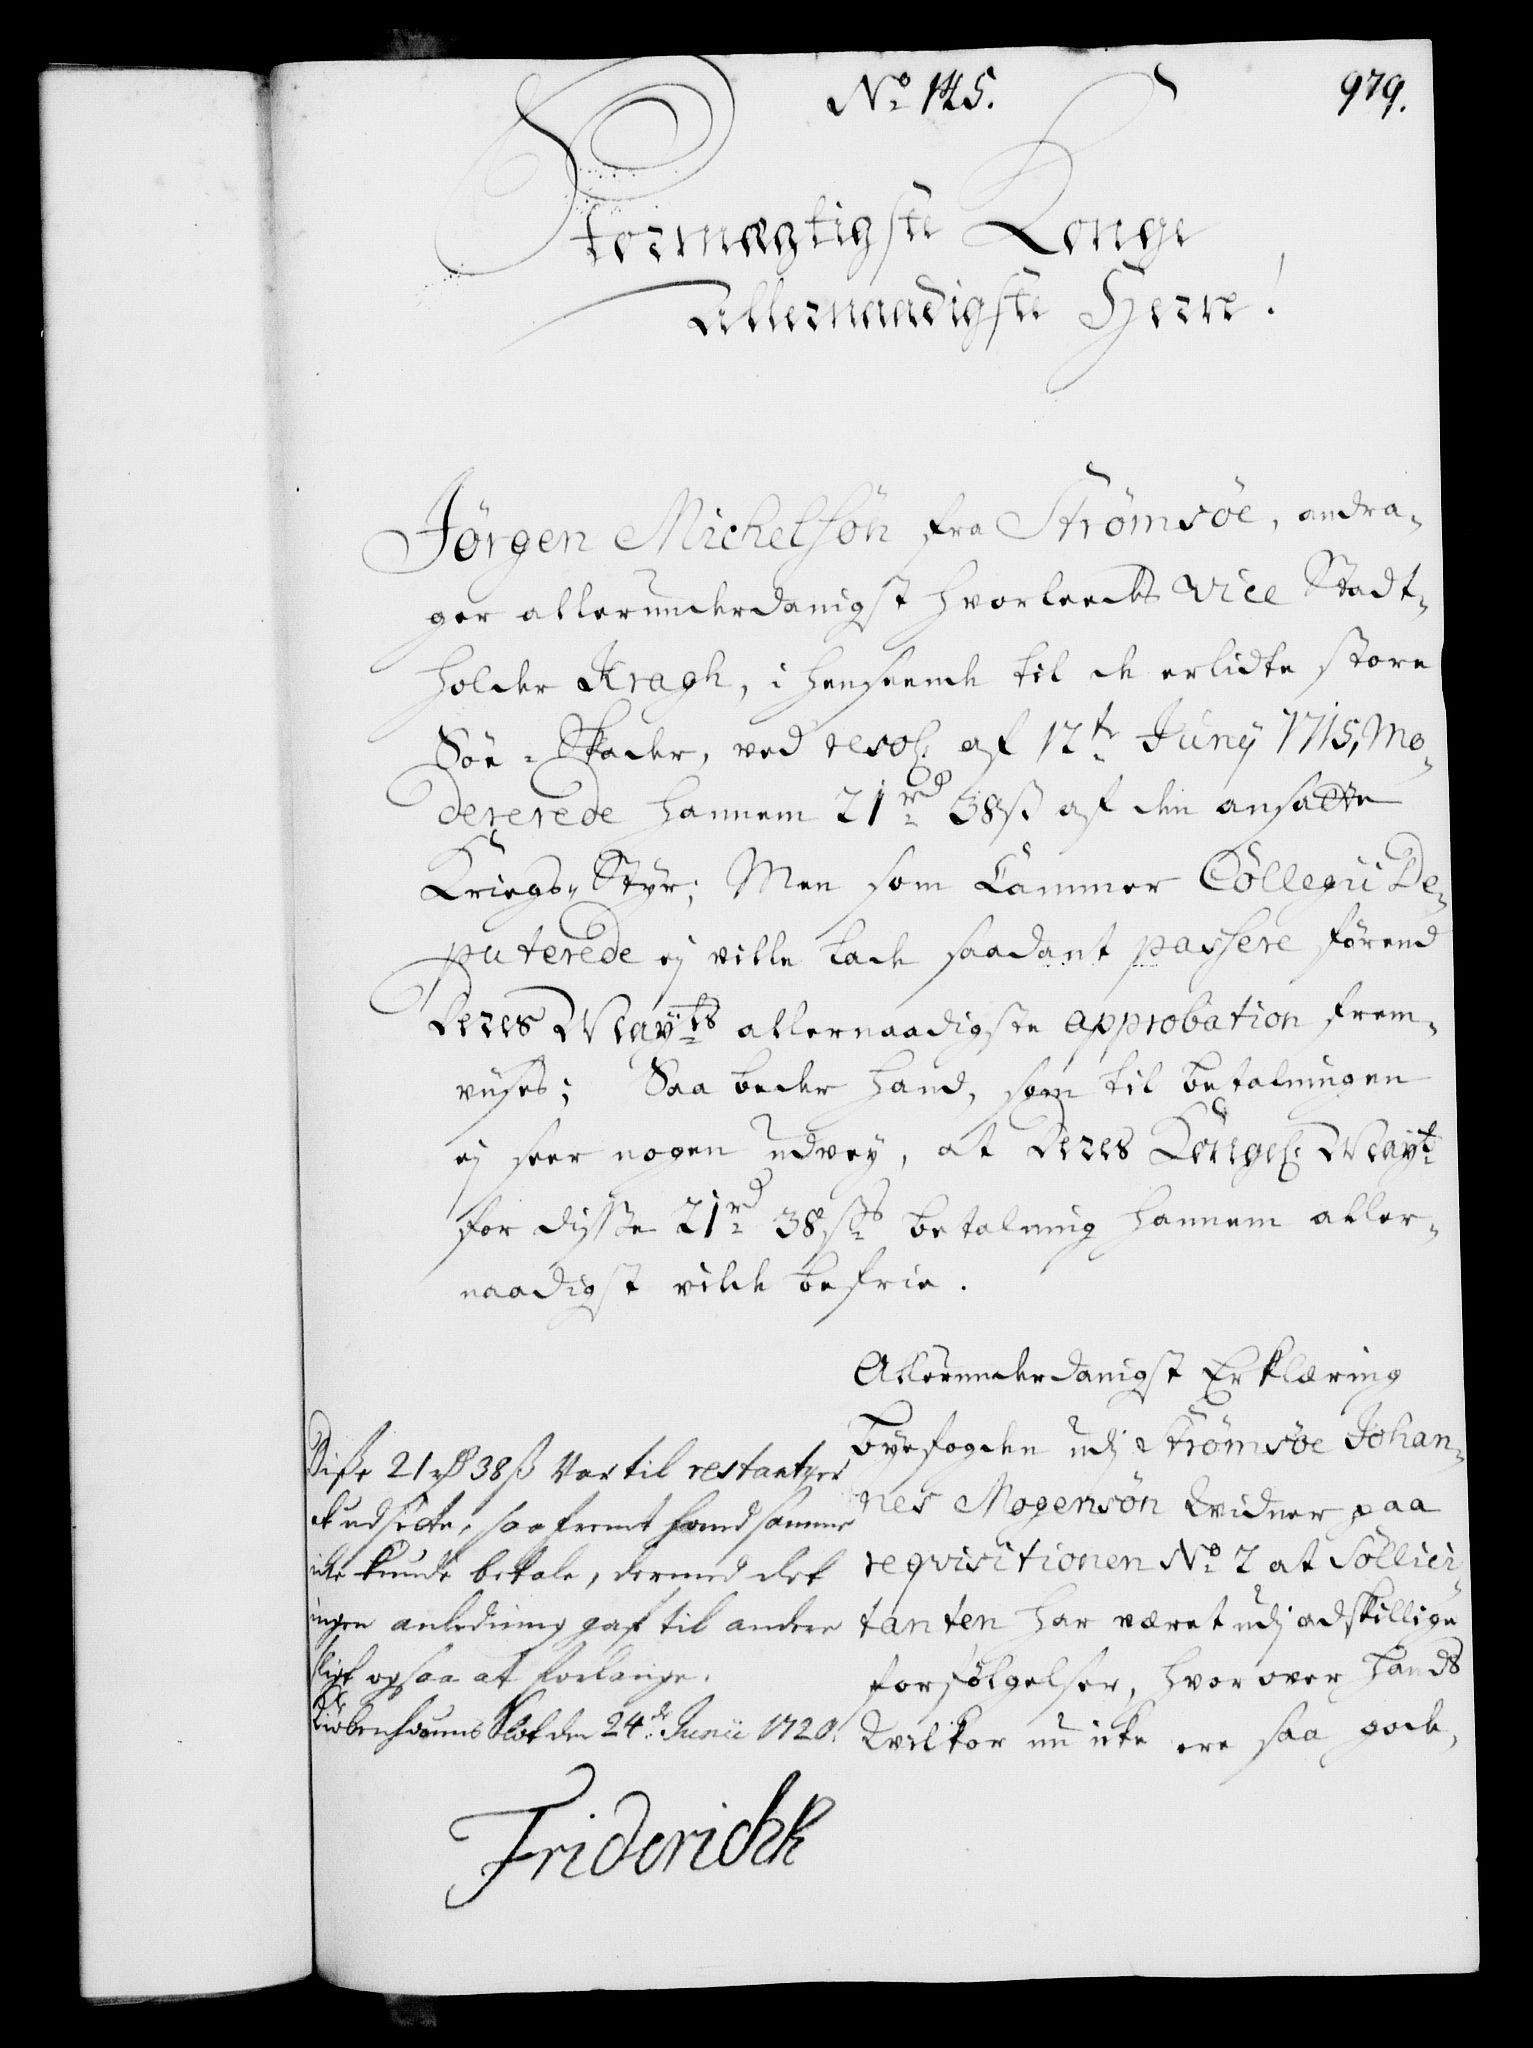 No 145.
979.
Stormægtigste Konge
Allernaadigste Herre!
Jörgen Michelsön fra Strömsöe, andra-
ger allerunderdanigst hvorleedes Vice Stadt-
holder Kragh, i henseende til de erlidte store
Söe-Skader, ved resol: af 12te Junÿ 1715, Mo-
dererede hannem 21rd 38ß af den ansatte
Kriegs-Styr; Men som Cammer Collegii De-
puterede ej ville lade saadant passere förend
Deres Mayts allernaadigste approbation frem-
viises; Saa beder hand, som til betalningen
ej seer nogen udvey, at Deres Kongel: Mayt
for disse 21rd 38ßs betalning hannem aller-
naadigst vilde befrie.
Allerunderdanigst Erklæring
Byefogden udj Strömsöe Johan-
nes Mogensön Kvidner paa
reqvisitionen No 2 at Sollici-
tanten har været udj adskillige
forfölgelser, hvorover hands
Kvilkor nu icke ere saa gode,
Disse 21 rd 38 ß Var til restantzer
udsætte, saafremt hand samme
icke kunde betale, dermed det
ingen anledning gaf til andre
sligt ogsaa at forlange.
Kiöbenhavns Slot den 24de Junii 1720.
Friderich R